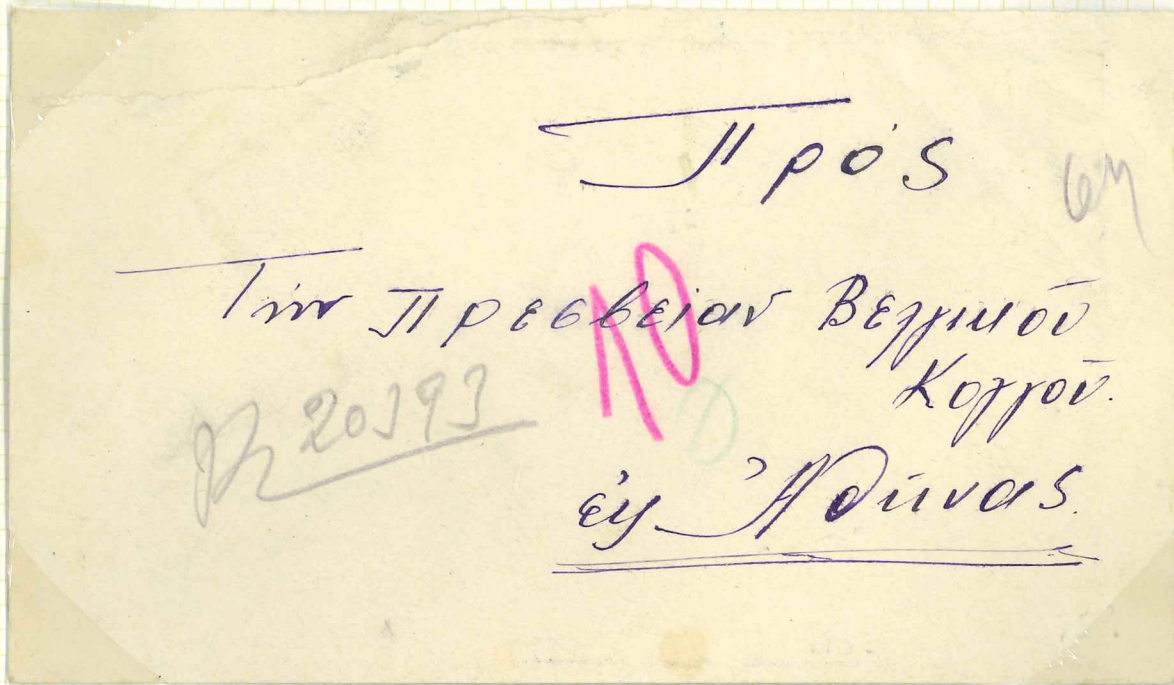 Πρός
64
Τήν Πρεσβείαν Βελγικοῦ
Κογγοῦ.
10
20393
εἰς Ἀθήνας.